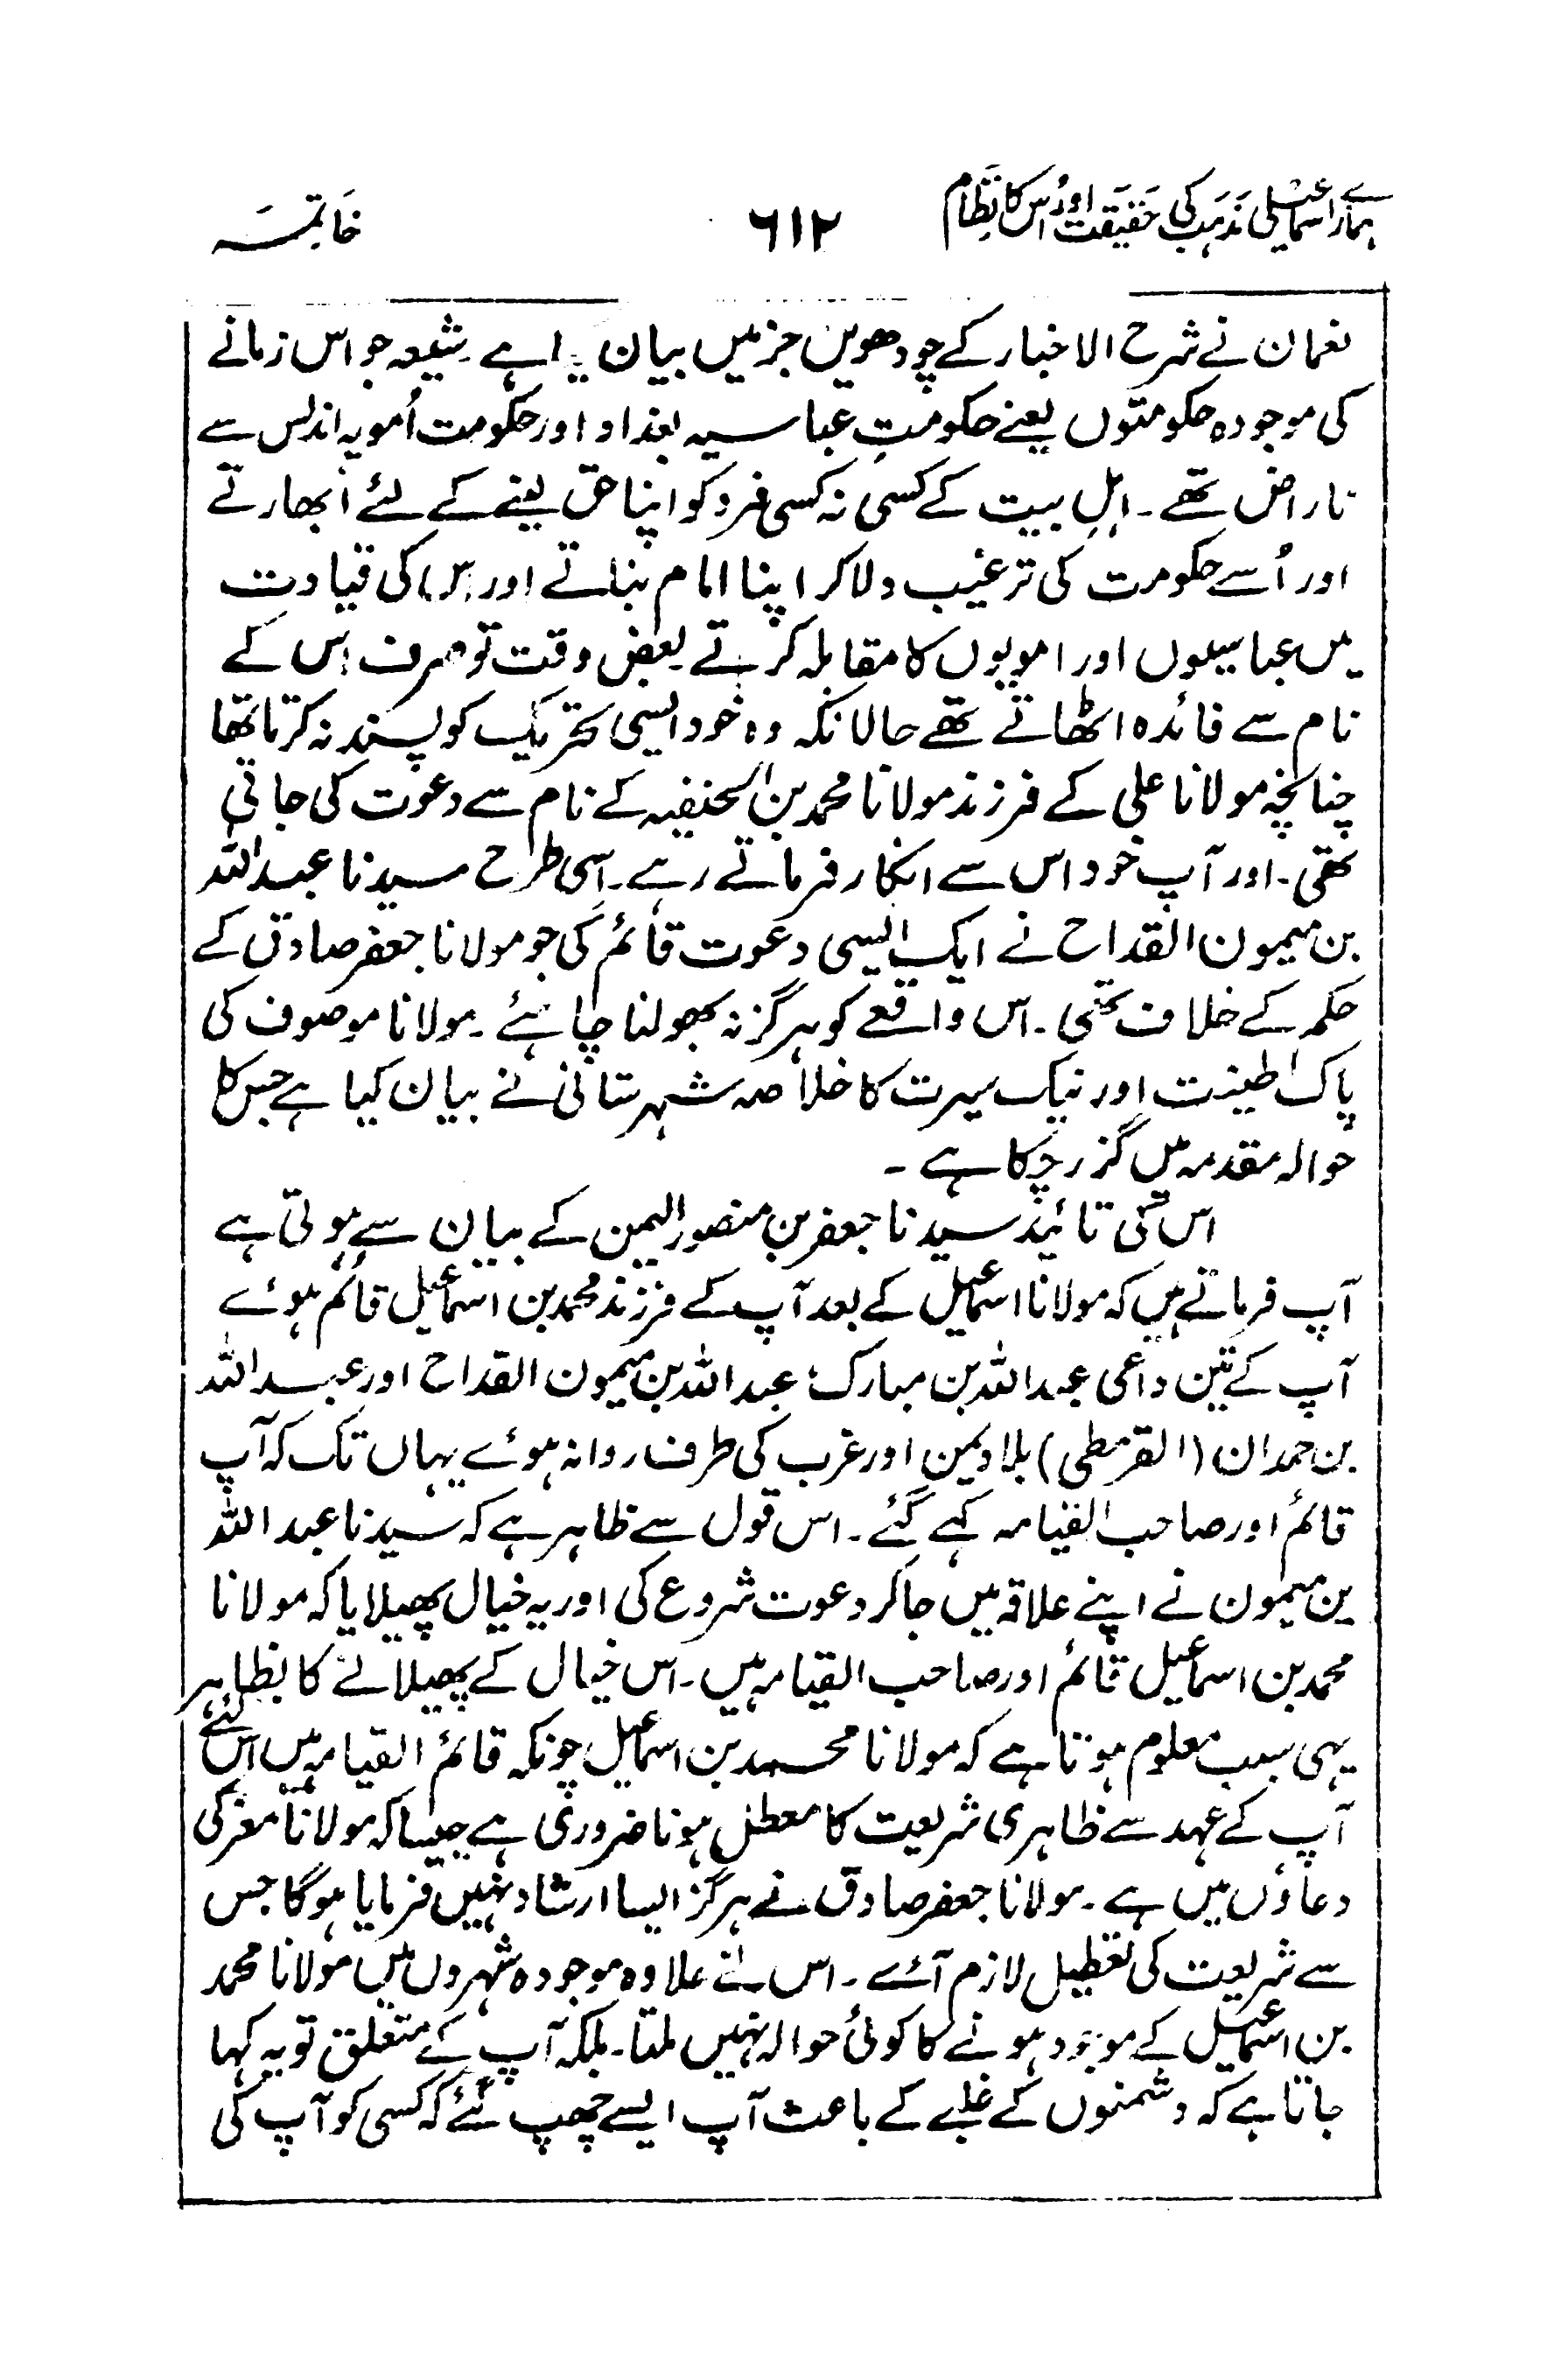 ہمارے اسماعیلی مذہب کی حقیقت اور اُس کا نظام ۶۱۲ خاتمہ
نعمان نے شرح الاخبار کے چودھویں جز میں بیان ہے۔ شیعہ جو اس زمانے
کی موجودہ حکومتوں یعنے حکومتِ عباسیہ بغداد اور حکومت اُمویہ اندلس سے
ناراض تھے۔ اہلِ بیت کے کسی نہ کسی فرد کو اپنا حق لینے کے لئے اُبھارتے
اور اُسے حکومت کی ترغیب دلا کر اپنا امام بناتے اور اس کی قیادت
میں عباسیوں اور امویوں کا مقابلہ کرتے۔ بعض وقت تو صرف اس کے
نام سے فائدہ اٹھاتے تھے حالانکہ وہ خود ایسی تحریک کو پسند نہ کرتا تھا
چنانچہ مولانا علی کے فرزند مولانا محمد بن الحنفیہ کے نام سے دعوت کی جاتی
تھی۔ اور آپ خود اس سے انکار فرماتے رہے۔ اسی طرح سیدنا عبداللہ
بن میمون القداح نے ایک ایسی دعوت قائم کی جو مولانا جعفر صادق کے
حکم کے خلاف تھی۔ اس واقعے کو ہرگز نہ بھولنا چاہئے۔ مولانا موصوف کی
پاک طینت اور نیک سیرت کا خلاصہ شہرستانی نے بیان کیا ہے جس کا
حوالہ مقدمہ میں گزر چکا ہے۔
اس کی تائید سیدنا جعفر بن منصور الیمن کے بیان سے ہوتی ہے
آپ فرماتے ہیں کہ مولانا اسماعیل کے بعد آپ کے فرزند محمد بن اسماعیل قائم ہوئے
آپ کے تین داعی عبداللہ بن مبارک، عبداللہ بن میمون القداح اور عبداللہ
بن حمدان (القرمطی) بلاد یمن اور غرب کی طرف روانہ ہوئے یہاں تک کہ آپ
قائم اور صاحب القیامہ کہے گئے۔ اس قول سے ظاہر ہے کہ سیدنا عبداللہ
بن میمون نے اپنے علاقہ میں جا کر دعوت شروع کی اور یہ خیال پھیلایا کہ مولانا
محمد بن اسماعیل قائم اور صاحب القیامہ ہیں۔ اس خیال کے پھیلانے کا بظاہر
یہی سبب معلوم ہوتا ہے کہ مولانا محمد بن اسماعیل چونکہ قائم القیامہ ہیں اس لئے
آپ کے عہد سے ظاہری شریعت کا معطل ہونا ضروری ہے جیسا کہ مولانا معز کی
دعاؤں میں ہے۔ مولانا جعفر صادق نے ہرگز ایسا ارشاد نہیں فرمایا ہوگا جس
سے شریعت کی تعطیل لازم آئے۔ اس کے علاوہ موجودہ شہروں میں مولانا محمد
بن اسماعیل کے موجود ہونے کا کوئی حوالہ نہیں ملتا۔ بلکہ آپ کے متعلق تو یہ کہا
جاتا ہے کہ دشمنوں کے غلبے کے باعث آپ ایسے چھپ گئے کہ کسی کو آپ کی